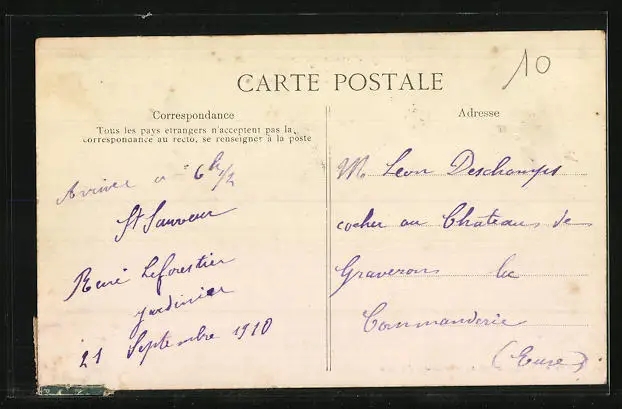 10
CARTE POSTALE
Correspondance
Tous les pays étrangers n'acceptent pas la
correspondance au recto, se renseigner à la poste
Adresse
Arrivée a 6h 1/2
St Sauveur
René Leforestier
jardinier
21 Septembre 1910
Mr Leon Deschamps
cocher au Chateau de
Graverons la
Commanderie
(Eure)